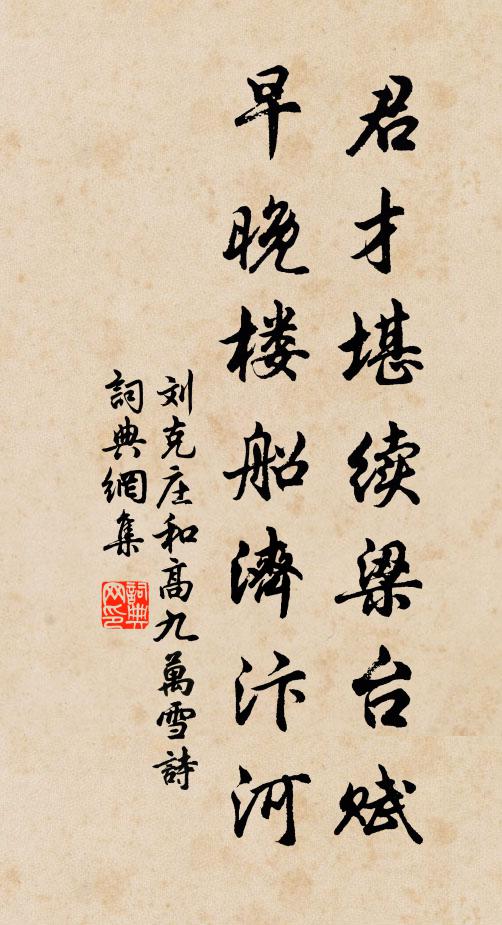 君才堪续梁台赋
早晚楼船濟汴河
刘克庄和高九萬雪詩
詞典網集
詞典网印